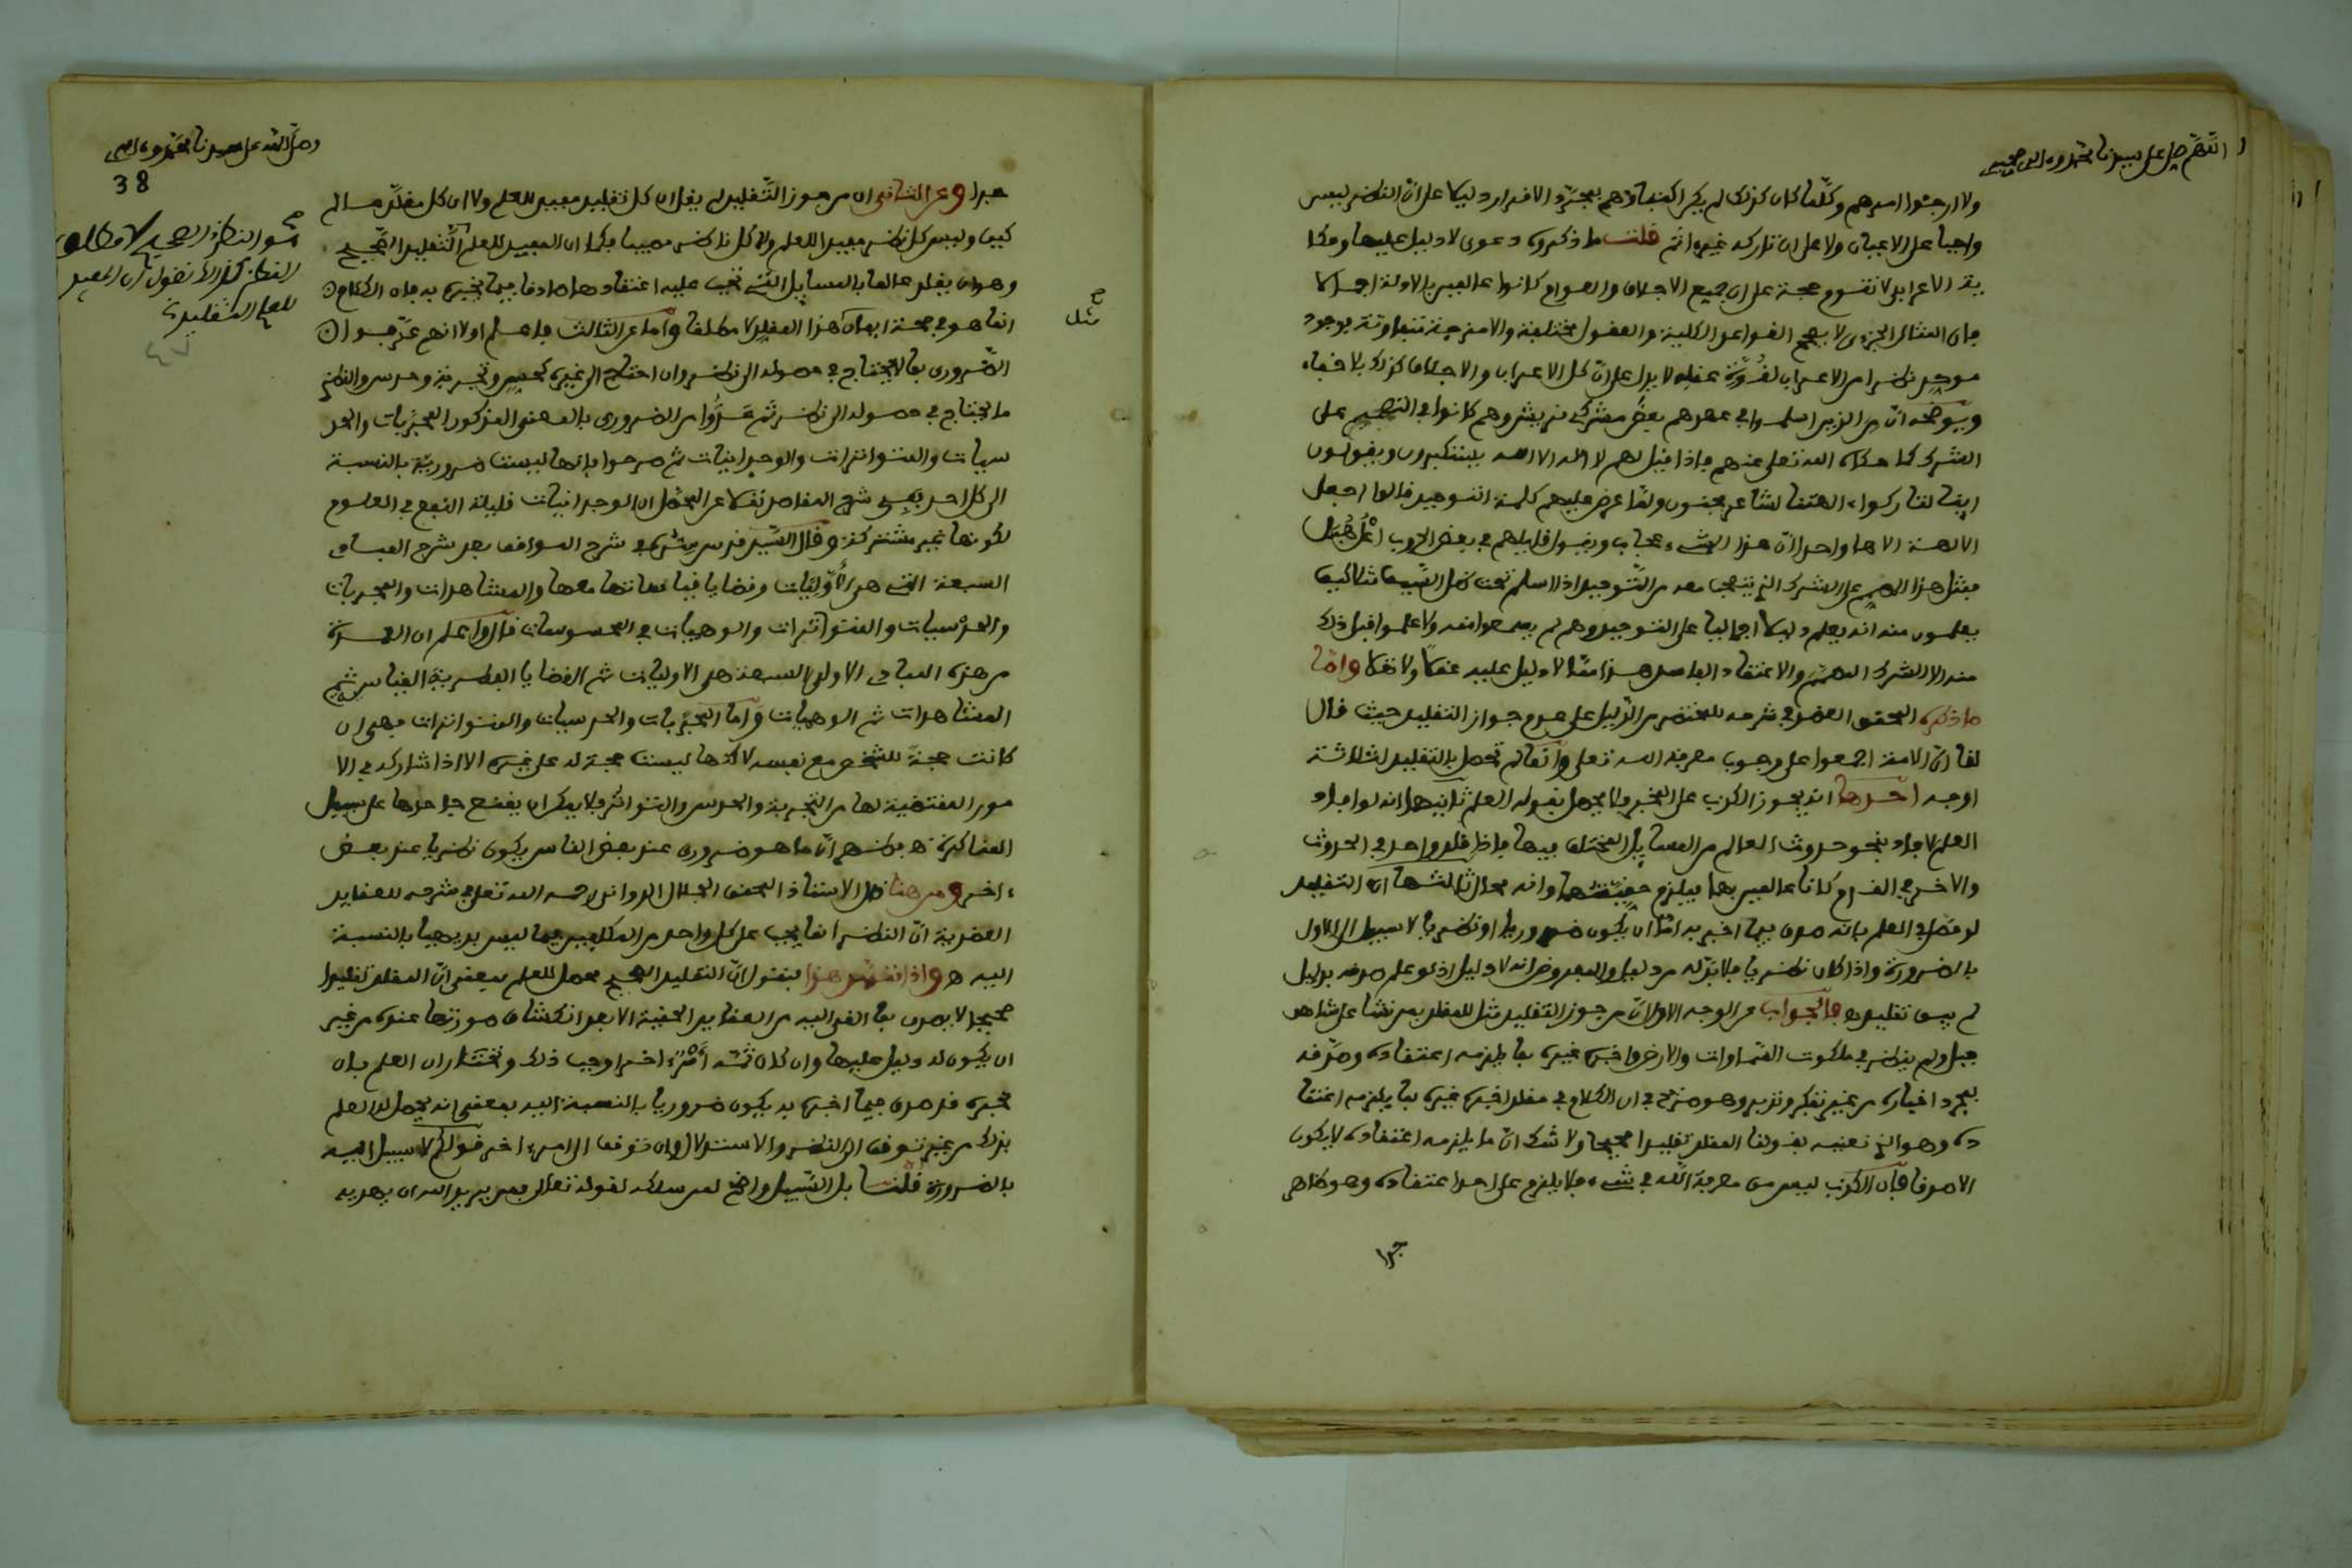 اللهم صل على سيدنا محمد وءاله وصحبه
ولا ارجئوا امرهم وكلما كان كذلك لم يكن اكتفاؤهم بمجرد الاقرار دليلا على ان النظر ليس
واجبا على الاعيان ولا على ان تاركه غير ءاثم قلت ما ذكروه دعوى لا دليل عليها وحكا
ية الاعرابي لا تقوم حجة على ان جميع الاجلاف والعوام كانوا عالمين بالادلة اجمالا
فان المثال الجزئي لا يصحح القواعد الكلية والعقول مختلفة والامزجة متفاوتة بوجود
موحد نظرا من الاعراب لقوة عقله لا يدل على ان كل الاعراب والاجلاف كذلك بلا خفاء
ويوضحه ان من الذين اسلموا في عهدهم بعض مشركي قريش وهم كانوا في التصميم على
الشرك كما حكاه الله تعلى عنهم فاذا قيل لهم لا اله الا الله يستكبرون ويقولون
اينا لتاركوا ءالهتنا لشاعر مجنون ولما عرض عليهم كلمة التوحيد قالوا اجعل
الالهة الاها واحدا ان هذا لشيء عجاب ويقول قايلهم في بعض الحروب اعل هبل
فمثل هذا المصمم على الشرك الذي يتعجب معه من التوحيد اذا اسلم تحت ظل السيف مثلا كيف
يعلمون منه انه يعلم دليلا اجماليا على التوحيد وهم لم يسمعوا منه ولا علموا قبل ذلك
منه الا الشرك المحض والاعتقاد الفاسد هذا مما لا دليل عليه عقلا ولا نقلا واما
ما ذكره المحقق العضد في شرحه للمختصر من الدليل على عدم جواز التقليد حيث قال
لنا ان الامة اجمعوا على وجوب معرفة الله تعلى وانها لم تحصل بالتقليد لثلاثة
اوجه احدها انه يجوز الكذب على المخبر فلا يحصل بقوله العلم ثانيها انه لو افاد
العلم لافاد بنحو حدوث العالم من المسايل المختلف فيها فاذا قلد واحد في الحدوث
والاخر في القدم كانا عالمين بهما فيلزم حقيتهما وانه محال ثالثها ان التقليد
لو حصل العلم بانه صدق فيما اخبر به اما ان يكون ضروريا او نظريا لا سبيل الى الاول
بالضرورة واذا كان نظريا فلا بد له من دليل والمفروض انه لا دليل اذ لو علم صدقه بدليل
لم يبق تقليد ه فالجواب عن الوجه الاول ان من جوز التقليد مثل للمقلد بمن نشا على شاهق
جبل ولم ينظر في ملكوت السماوات والارض واخبره غيره بما يلزمه اعتقاده وصدقه
بمجرد اخباره من غير تفكر وتدبر وهو صريح في ان الكلام في مقلد اخبره غيره بما يلزمه اعتقا
ده وهو الذي نعنيه بقولنا المقلد تقليدا صحيحا ولا شك ان ما يلزمه اعتقاده لا يكون
الا صدقا فان الكذب ليس من معرفة الله في شيء فلا يلزم على احد اعتقاده وهو ظاهر
جدا
وصلى الله على سيدنا محمد وءاله
38
جدا وعن الثاني ان من جوز التقليد لم يقل ان كل تقليد مفيد للعلم ولا ان كل مقلد عالم
كيف وليس كل نظر مفيدا للعلم ولا كل ناظر مصيبا فكما ان المفيد للعلم التقليد الصحيح
وهو ان يقلد عالما بالمسايل التي تجب عليه اعتقادها صادقا فيما يخبره به فان الكلام
انما هو في صحة ايمان هذا المقلد لا مطلقا واما عن الثالث فاعلم اولا انهم عرفوا
الضروري بما لا يحتاج في حصوله الى نظر وان احتاج الى غيره كحس وتجربة وحدس والنظري
ما يحتاج في حصوله الى نظر ثم عدوا من الضروري بالمعنى المذكور المجربات والحد
سيات والمتواترات والوجدانيات ثم صرحوا بانها ليست ضرورية بالنسبة
الى كل احد ففي شرح المقاصد نقلا عن المحصل ان الوجدانيات قليلة النفع في العلوم
لكونها غير مشتركة وقال السيد قدس سره في شرح المواقف بعد شرح المباد
السبعة التي هي الاوليات وقضايا قياساتها معها والمشاهدات والمجربات
والحدسيات والمتواترات والوهميات في المحسوسات قال واعلم ان العمدة
من هذه المبادي الاولى السبعة هي الاوليات ثم القضايا الفطرية القياس ثم
المشاهدات ثم الوهميات واما المجربات والحدسيات والمتواترات فهي ان
كانت حجة للشخص مع نفسه لاكنها ليست حجة له على غيره الا اذا شاركه في الا
مور المقتضية لها من التجربة والحدس والتواتر فلا يمكن ان يقنع جاحدها على سبيل
المناكرة ه فظهر ان ما هو ضروري عند بعض الناس يكون نظريا عند بعض
ءاخر ومن هنا قال الاستاذ المحقق الجلال الدواني رحمه الله تعلى في شرحه للعقايد
العضدية ان النظر انما يجب على كل واحد من المكلفين فيما ليس بديهيا بالنسبة
اليه ه واذا تقرر هذا فنقول ان التقليد الصحيح محصل للعلم بمعنى ان المقلد تقليدا
صحيحا لا يصدق بما القي اليه من العقايد الحقية الا بعد انكشاف صدقها عنده من غير
ان يكون له دليل عليها وان كان ثمة امر ءاخر اوجب ذلك ونختار ان العلم بان
مخبره قد صدق فيما اخبره به يكون ضروريا بالنسبة اليه بمعنى انه يحصل له العلم
بذلك من غير توقف الى النظر والاستدلال وان توقف الى امر ءاخر قولكم لا سبيل اليه
بالضرورة قلنا بل السبيل واضح لمن سلكه لقوله تعالى فمن يرد الله ان يهديه
صح
مثل
صح
هو النظر الصحيح لا مطلق
النظر كذلك نقول ان المفيد
للعلم التقليد